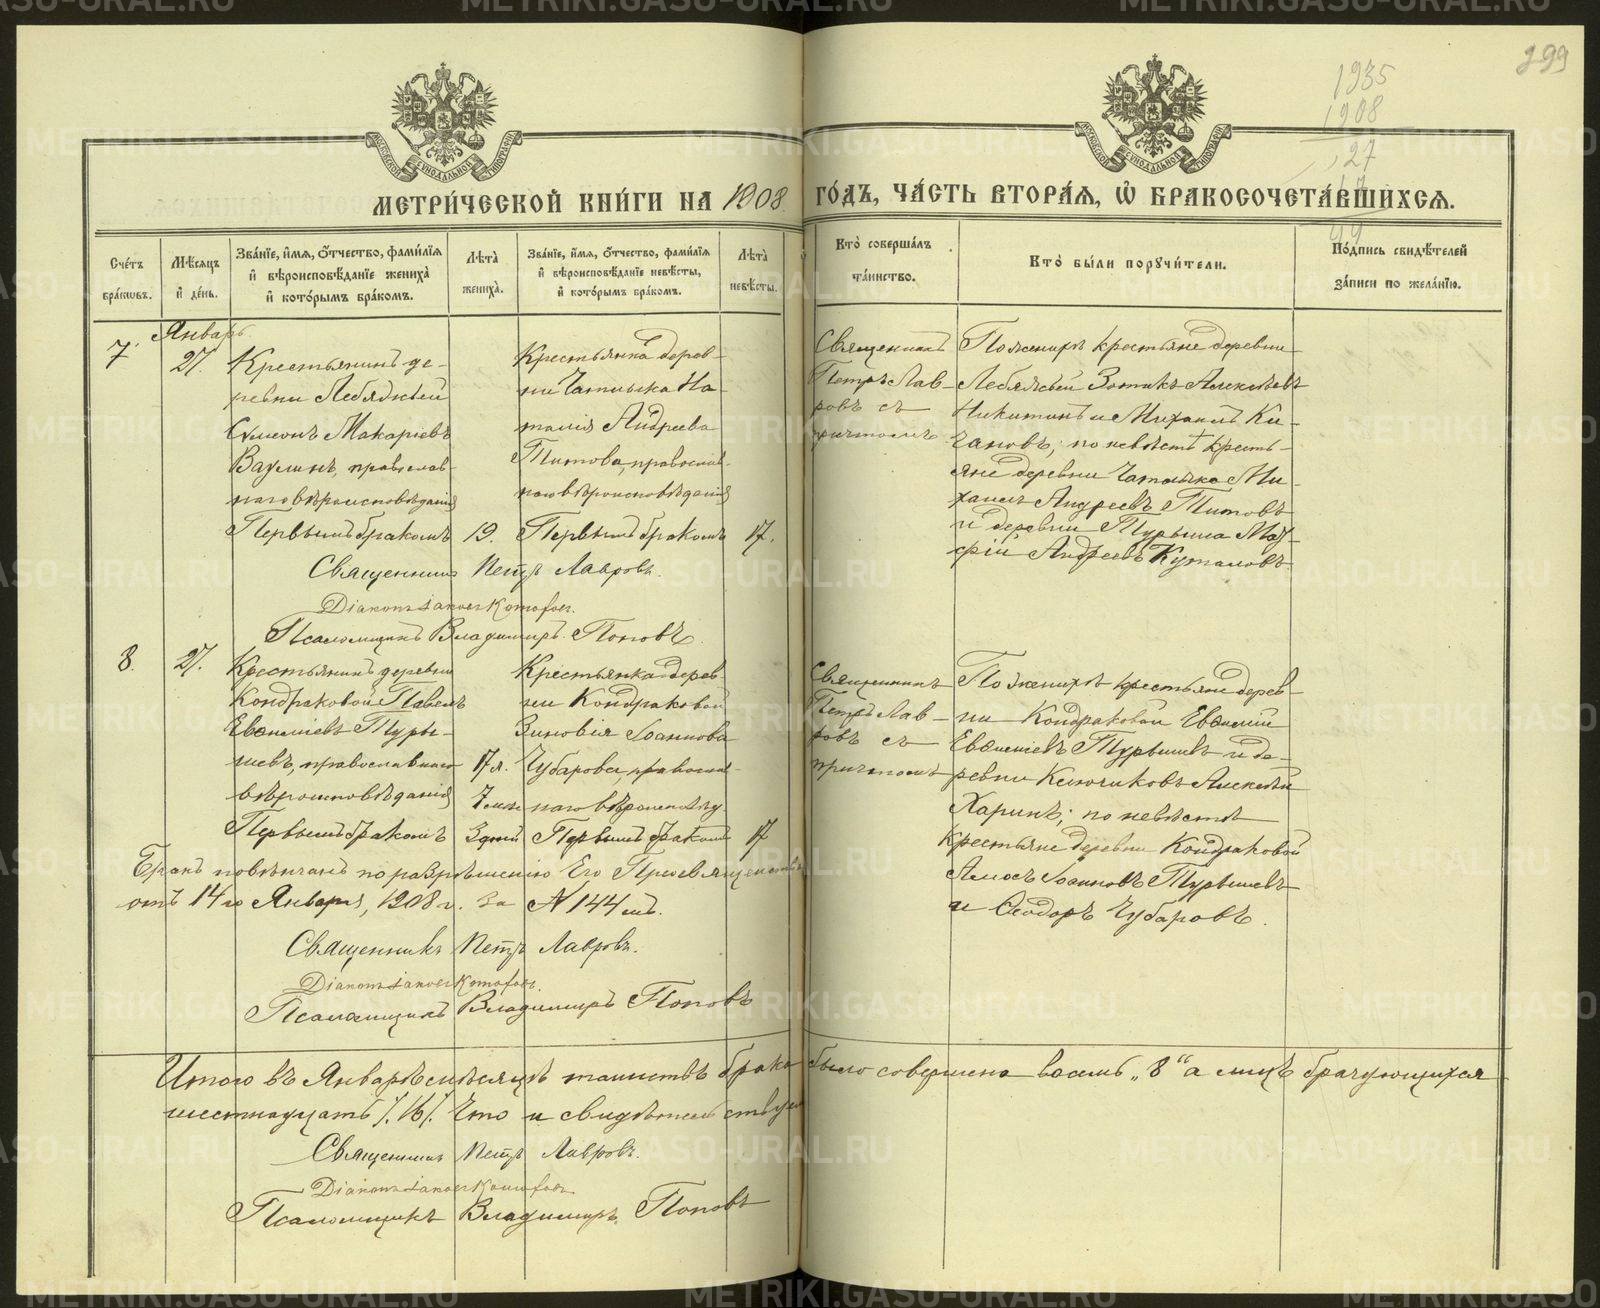 299
1935
1908
27
МОСКОВСКОЙ СѴНОДАЛЬНОЙ ТИПОГРАФІИ
МОСКОВСКОЙ СѴНОДАЛЬНОЙ ТИПОГРАФІИ
МЕТРИ́ЧЕСКОЙ КНИ́ГИ НА 1908 ГО́ДЪ, ЧА́СТЬ ВТОРА́Я, Ѽ БРАКОСОЧЕТА́ВШИХСЯ.
Сче́тъ бра́ковъ.
Мѣ́сяцъ и҆ де́нь.
Зва́нїе, и҆́мя, ѻ҆́тчество, фами́лїя и҆ вѣроисповѣ́данїе жениха̀ и҆ кото́рымъ бра́комъ.
Лѣта̀ жениха̀.
Зва́нїе, и҆́мя, ѻ҆́тчество, фами́лїя и҆ вѣроисповѣ́данїе невѣ́сты, и҆ кото́рымъ бра́комъ.
Лѣта̀ невѣ́сты.
Кто̀ соверша́лъ та́инство.
Кто̀ бы́ли порꙋчи́тели.
По́дпись свидѣ́телей за́писи по жела́нїю.
7.
Январь
27.
Крестьянинъ де-
ревни Лебяжьей
Сѵмеонъ Макаріевъ
Ваулинъ, православ-
наго вѣроисповѣданія
Первымъ бракомъ
19.
Крестьянка дерев-
ни Чатлыка На-
талія Андреева
Титова, православ-
наго вѣроисповѣданія
Первымъ бракомъ
17.
Священникъ
Петръ Лав-
ровъ съ
причтомъ
По женихѣ крестьяне деревни
Лебяжьей Зотикъ Алексѣевъ
Никитинъ и Михаилъ Ки-
чановъ; по невѣстѣ кресть-
яне деревни Чатлыка Ми-
хаилъ Андреевъ Титовъ
и деревни Турыша Мат-
фій Андреевъ Куталовъ
Священникъ Петръ Лавровъ.
Diаконъ
Псаломщикъ Владимиръ Поповъ.
8.
27.
Крестьянинъ деревни
Кондраковой Павелъ
Евѳиміевъ Туры-
шевъ, православнаго
вѣроисповѣданія
Первымъ бракомъ
17 л.
7 мѣс
3 дней
Крестьянка дерев-
ни Кондраковой
Зиновія Іоаннова
Чубарова, православ-
наго вѣроисповѣд.
Первымъ бракомъ
17
Священникъ
Петръ Лав-
ровъ съ
причтомъ
По женихѣ крестьяне дерев-
ни Кондраковой Евѳимій
Евѳиміевъ Турышевъ и де-
ревни Ключиковъ Алексѣй
Харинъ; по невѣстѣ
крестьяне деревни Кондраковой
Амосъ Іоанновъ Турышевъ
и Ѳеодоръ Чубаровъ.
Бракъ повѣнчанъ по разрѣшенію Его Преосвященства
отъ 14го Января, 1908 г. за № 144 мъ.
Священникъ Петръ Лавровъ.
Diаконъ
Псаломщикъ Владимиръ Поповъ
Итого въ Январѣ мѣсяцѣ таинствъ брака было совершено восемь „8“ а лицъ брачующихся
шестнадцать /.16/. Что и свидѣтельствуемъ
Священникъ Петръ Лавровъ.
Diаконъ
Псаломщикъ Владимиръ Поповъ
METRIKI.GASO-URAL.RU